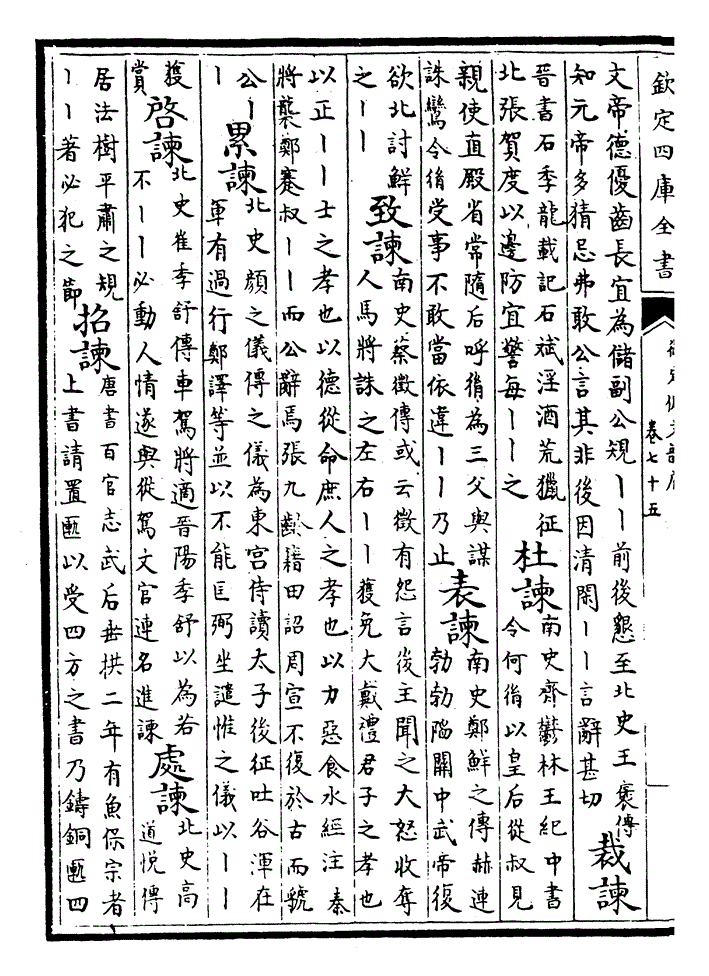 欽定四庫全書
御定佩文韻府
卷七十五
文帝德優齒長宜為儲副公規丨丨前後懇至北史王襃傳
知元帝多猜忌弗敢公言其非後因清閑丨丨言辭甚切
裁諫
晉書石季龍載記石斌淫酒荒獵征
北張賀度以邊防宜警每丨丨之
杜諫
南史齊鬱林王紀中書
令何偦以皇后從叔見
親使直殿省常隨后呼偦為三父與謀
誅鸞令偦受事不敢當依違丨丨乃止
表諫
南史鄭鮮之傳赫連
勃勃陷關中武帝復
欲北討鮮
之丨丨
致諫
南史蔡徵傳或云徵有怨言後主聞之大怒收奪
人馬將誅之左右丨丨獲免大戴禮君子之孝也
以正丨丨士之孝也以德從命庶人之孝也以力惡食水經注秦
將襲鄭蹇叔丨丨而公辭焉張九齡籍田詔周宣不復於古而虢
公丨
丨
累諫
北史顏之儀傳之儀為東宮侍讀太子後征吐谷渾在
軍有過行鄭譯等並以不能匡弼坐譴惟之儀以丨丨
獲
賞
啓諫
北史崔季舒傳車駕將適晉陽季舒以為若
不丨丨必動人情遂與從駕文官連名進諫
處諫
北史高
道悅傳
居法樹平肅之規
丨丨著必犯之節
招諫
唐書百官志武后垂拱二年有魚保宗者
上書請置匭以受四方之書乃鑄銅匭四